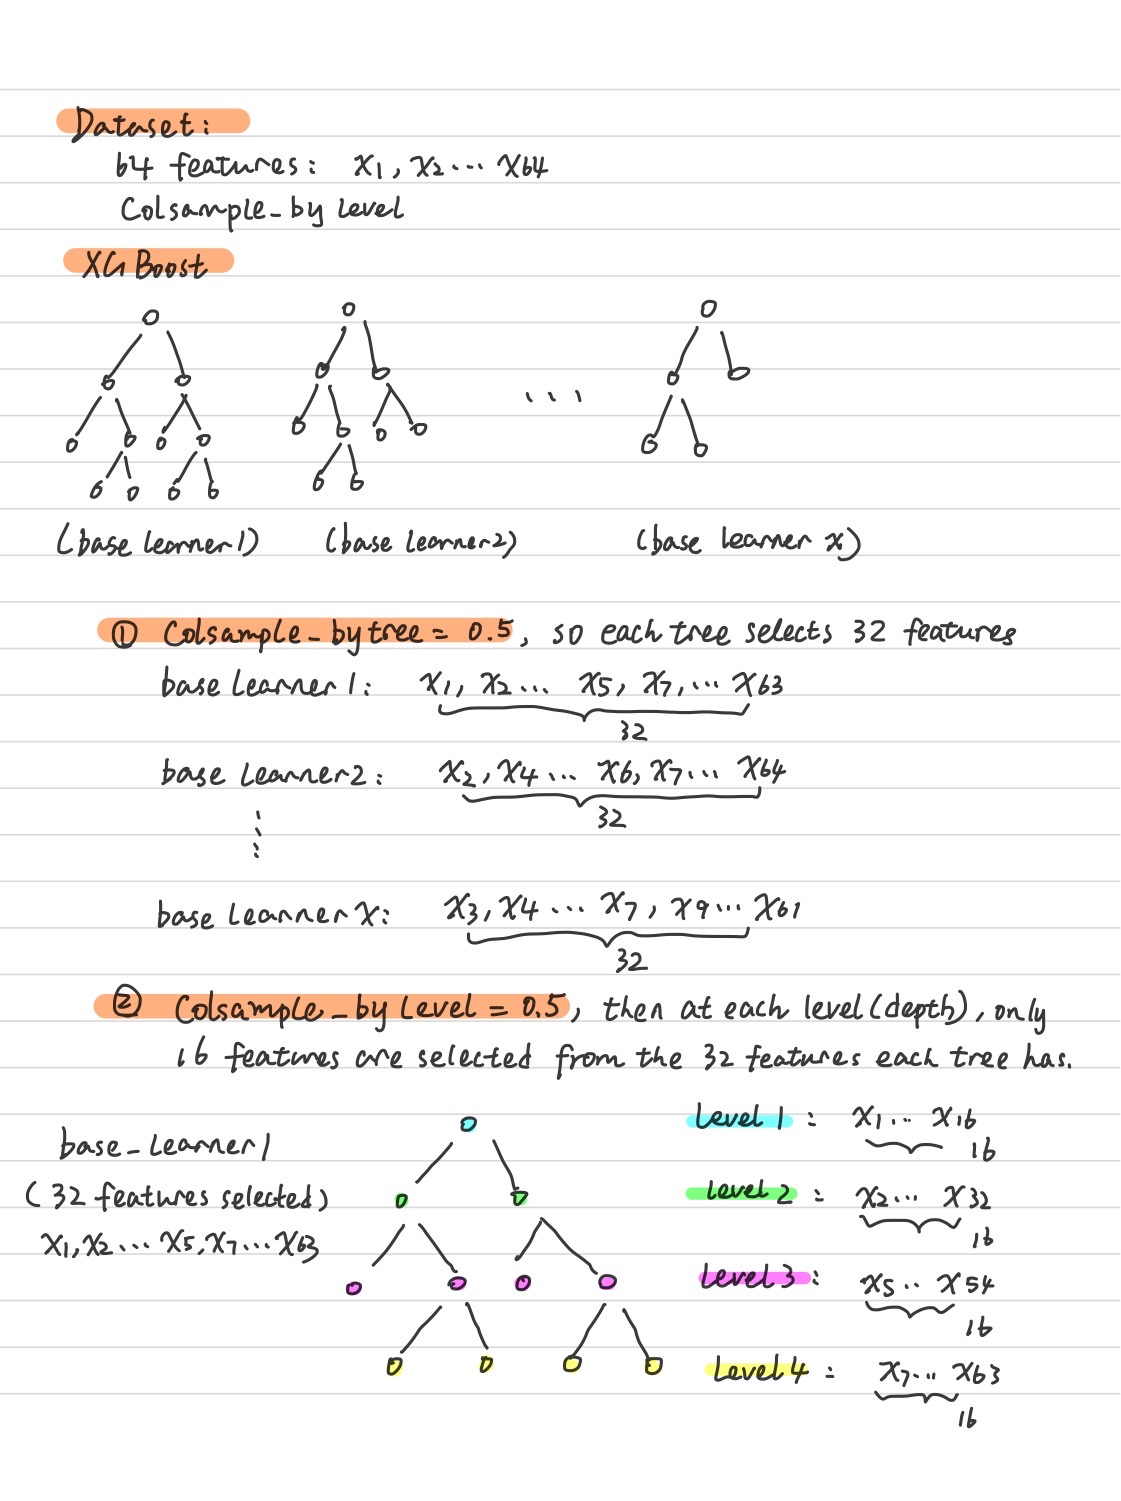 Dataset:
64 features: x1, x2 ... x64
Colsample_by level
XG Boost
...
(base learner 1) (base learner 2) (base learner x)
① Colsample_by tree = 0.5, so each tree selects 32 features
base learner 1: x1, x2 ... x5, x7, ... x63
32
base learner 2: x2, x4 ... x6, x7 ... x64
32
⋮
base learner x: x3, x4 ... x7, x9 ... x61
32
② Colsample_by level = 0.5, then at each level (depth), only
16 features are selected from the 32 features each tree has.
level 1 : x1 ... x16
base_learner 1
16
(32 features selected)
level 2 : x2 ... x32
16
x1, x2 ... x5, x7 ... x63
level 3 : x5 .. x54
16
level 4 : x7 ... x63
16